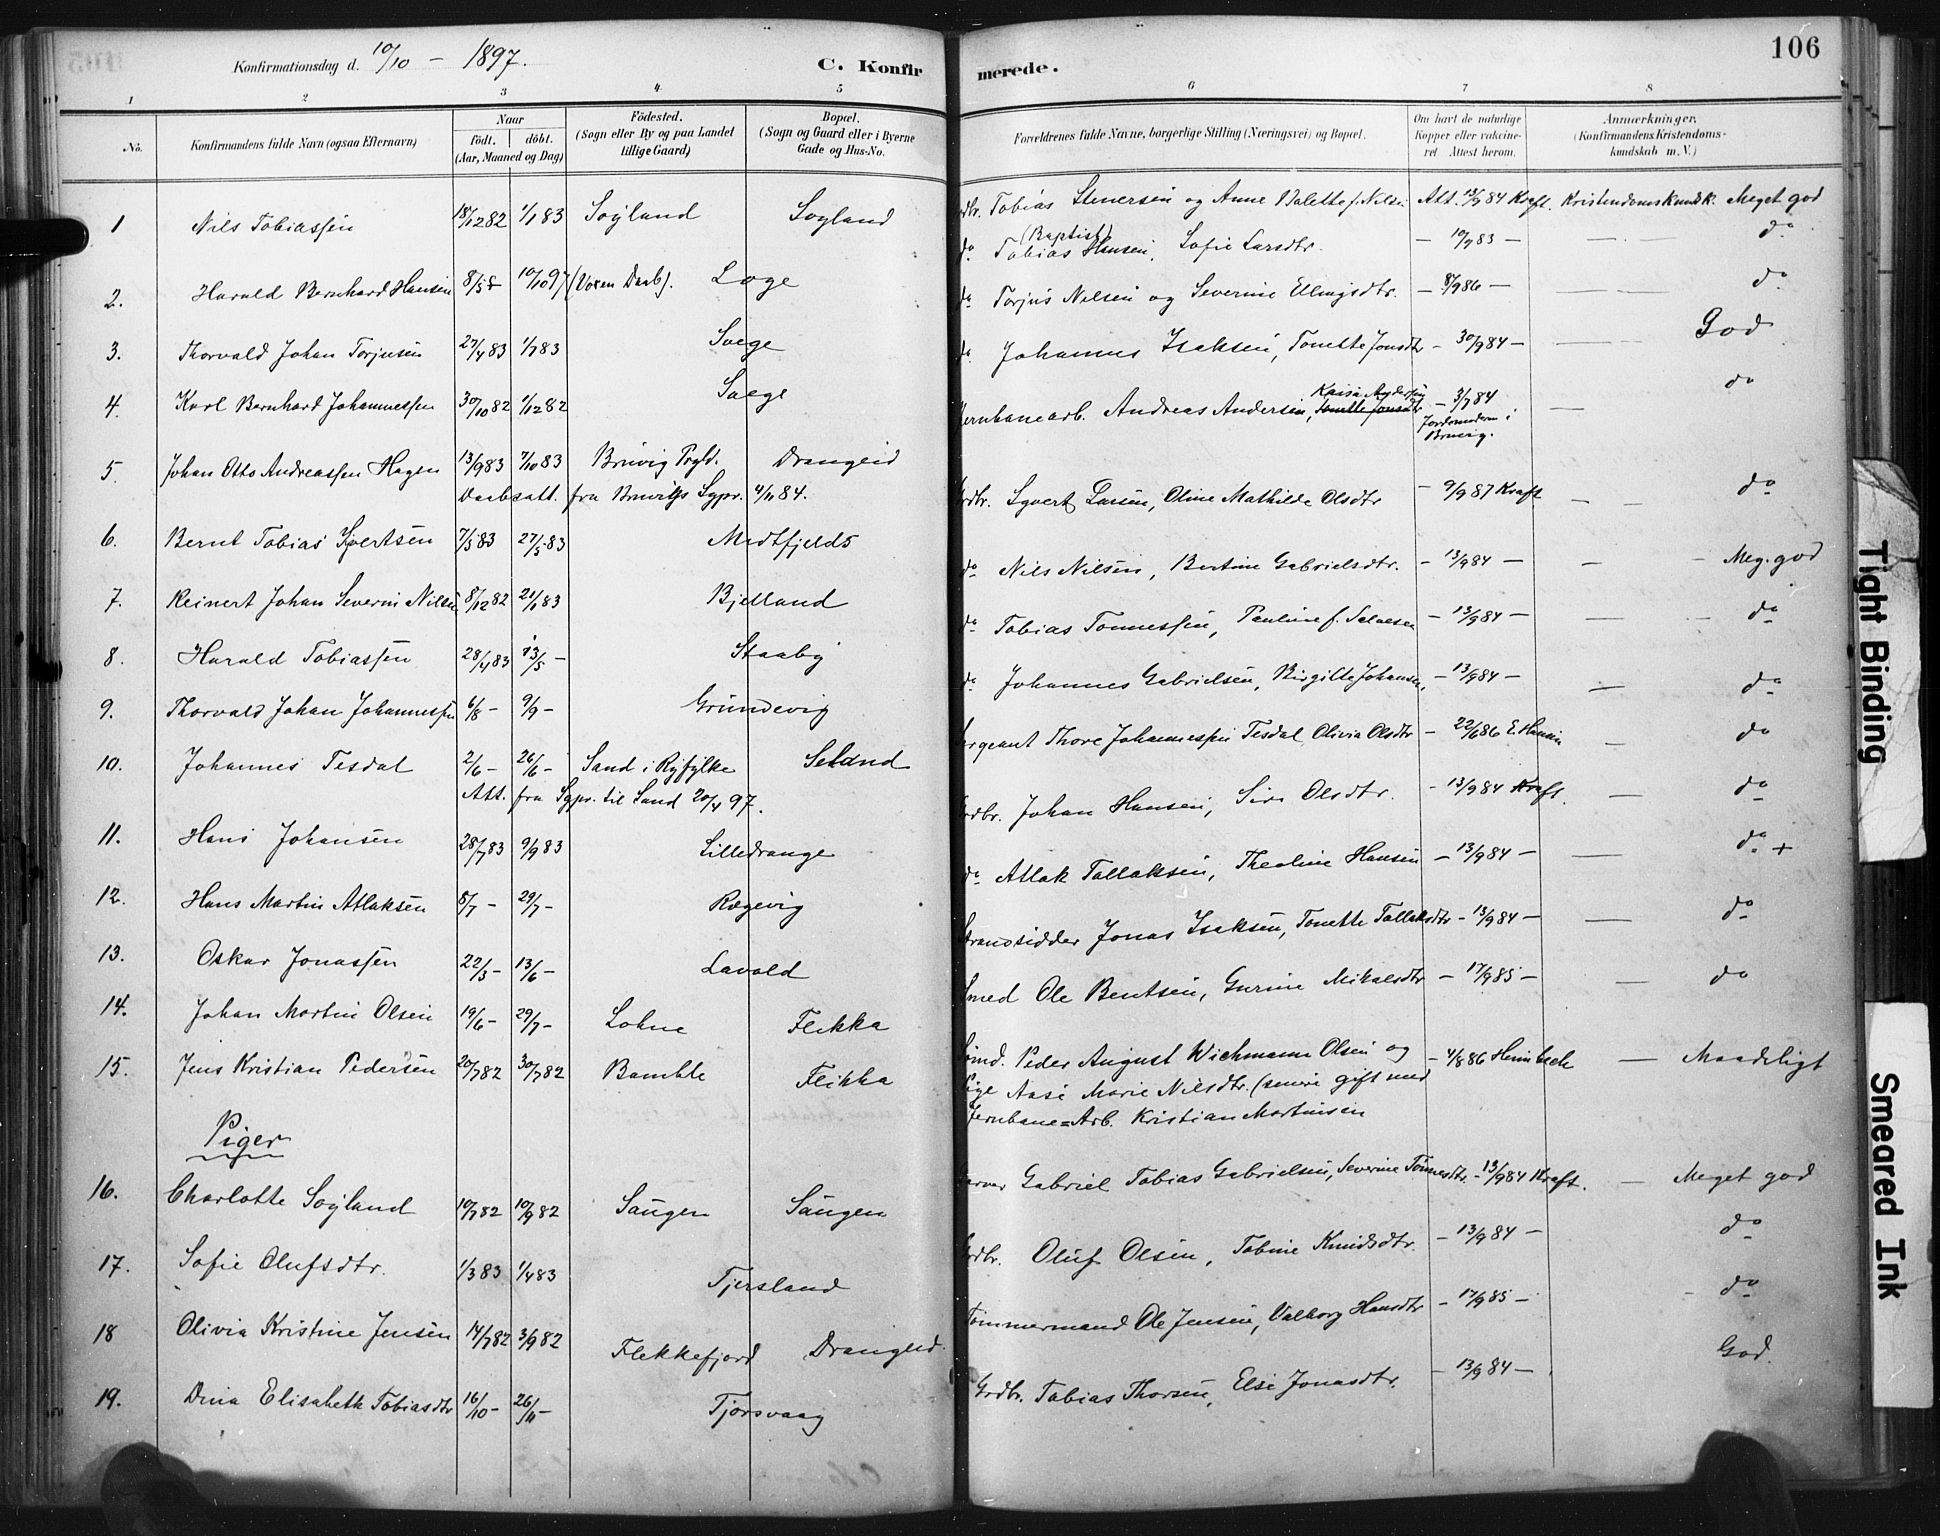 Konfirmationsdag d. 10/10 – 1897.
C. Konfir
merede.
106
1 2 3 4 5 6 7 8
No.
Konfirmandens fulde Navn (ogsaa Efternavn)
Naar
födt. döbt.
(Aar, Maaned og Dag)
Födested.
(Sogn eller By og paa Landet
tillige Gaard)
Bopæl.
(Sogn og Gaard eller i Byerne
Gade og Hus-No.
Forældrenes fulde Navne, borgerlige Stilling (Næringsvei) og Bopæl.
Om havt de naturlige
Kopper eller vakcine-
ret Attest herom.
Anmærkninger.
(Konfirmandens Kristendoms-
kundskab m. V.)
1 Nils Tobiassen 18/12 82 1/1 83 Soyland Soyland
Tobias Stenersen og Anne Valette f. Nilsen Att. 13/9 84 Kraft. Kristendomskundsk. Meget god
2. Harald Bernhard Hansen 10/10 97 (Voxen Daab). Loge
do (Baptist) Tobias Hansen, Sofie Larsdtr. – 10/7 83 – — do
3. Thorvald Johan Torjusen 27/4 83 1/7 83 Svege
do Torjus Nilsen og Severine Ellingsdtr. – 8/9 86 – — do
4. Karl Bernhard Johannessen 30/10 82 1/12 82 Svege
do Johannes Isaksen, Tonette Jonsdtr – 30/9 84 – — God
5. Johan Otto Andreassen Hagen 13/9 83 7/10 83 Bruvig Prgld. Drangeid
Daabsatt. fra Bruvigs Sgpr. 4/11 84.
Jernbanearb. Andreas Andersen, Tonette Jonsdtr Kaisa Andersen – 3/7 84
Jordemoderen i
Bruvig. — do
6. Bernt Tobias Syvertsen 7/5 83 27/5 83 Midtfjelds
Grdbr. Syvert Larsen, Oline Mathilde Olsdtr – 9/9 87 Kraft — do
7. Reinert Johan Severin Nilsen 8/12 82 21/1 83 Bjelland
do Nils Nilsen, Bertine Gabrielsdtr. – 13/9 84 – — Meg. god
8. Harald Tobiassen 28/4 83 13/5 – Staaby
do Tobias Tønnessen, Pauline f. Salvesen – 13/9 84 – — do
9. Thorvald Johan Johannessen 6/8 – 9/9 – Grundevig
do Johannes Gabrielsen, Birgitte Johansen, – 13/9 84 – — do
10. Johannes Tesdal 2/6 – 26/6 – Sand i Ryfylke Seland
Att. fra Sgpr. til Sand 20/4 97.
Sergeant Thore Johannessen Tesdal Olivia Olsdtr – 22/6 86 E. Hansen — do
11. Hans Johansen 28/7 83 9/9 83 Lilledrange
Grdbr. Johan Hansen, Siri Olsdtr. – 13/9 84 Kraft. — do
12. Hans Martin Atlaksen 8/7 – 29/7 – Rægevig
do Atlak Tallaksen, Theoline Hansen – 13/9 84 – — do +
13. Oskar Jonassen 22/5 – 13/6 – Lavold
Strandsidder Jonas Isaksen, Tonette Tallaksdtr – 13/9 84 – — do
14. Johan Martin Olsen 19/6 – 29/7 – Lohne Flikka
Smed Ole Bentsen, Gurine Mikalsdtr – 17/9 85 – — do
15. Jens Kristian Pedersen 20/7 82 30/7 82 Bamble Flikka
Sømd. Peder August Wichmann Olsen og – 4/8 86 Heimbeck — Maadeligt
Pige Aase Marie Nilsdtr. (senere gift med
Jernbane=Arb. Kristian Martinsen
Piger
16. Charlotte Soyland 10/7 82 10/9 82 Saugen Saugen
Garver Gabriel Tobias Gabrielsen, Severine Tønnesdtr. – 13/9 84 Kraft. — Meget god
17. Sofie Olufsdtr. 1/3 83 1/4 83 Tjersland
Grdbr. Oluf Olsen, Tobine Knudsdtr. – 13/9 84 – do
18 Olivia Kristine Jensen 14/7 82 3/9 82 Flekkefjord Drangeid.
Tømmermand Ole Jensen, Valborg Hansdtr – 17/9 85 – — do
19. Dina Elisabeth Tobiasdtr 16/10 – 26/11 – Tjørsvaag
Grdbr. Tobias Thorsen, Else Jonasdtr. – 13/9 84 – God.
Tight Binding
Smeared Ink